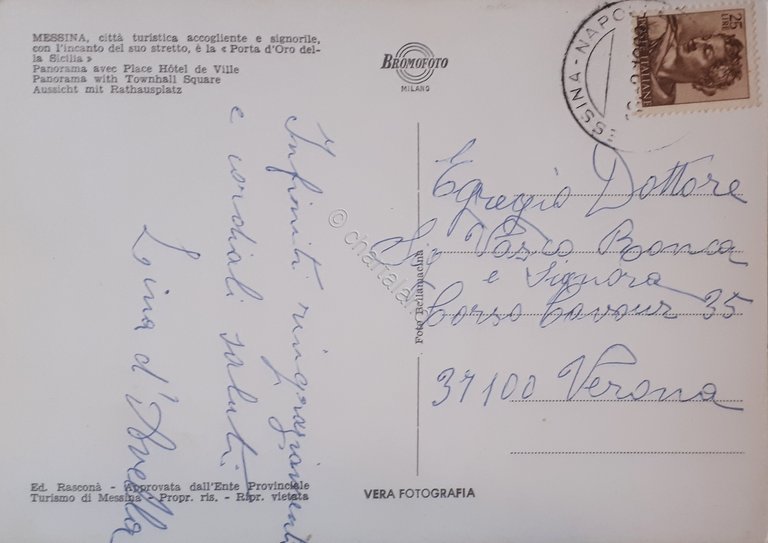 MESSINA, città turistica accogliente e signorile,
con l'incanto del suo stretto, è la « Porta d'Oro del-
la Sicilia »
Panorama avec Place Hôtel de Ville
Panorama with Townhall Square
Aussicht mit Rathausplatz
BROMOFOTO
MILANO
MESSINA - NAPOLI
25
LIRE
ITALIANE
Infiniti ringraziamenti
e cordiali saluti.
Lina d'Avella
Egregio Dottore
Sig Vasco Bonca
e Signora
Corso Cavour 35
37100 Verona
Foto Bellamacina
© chartaland
Ed. Rasconà - Approvata dall'Ente Provinciale
Turismo di Messina - Propr. ris. - Ripr. vietata
VERA FOTOGRAFIA